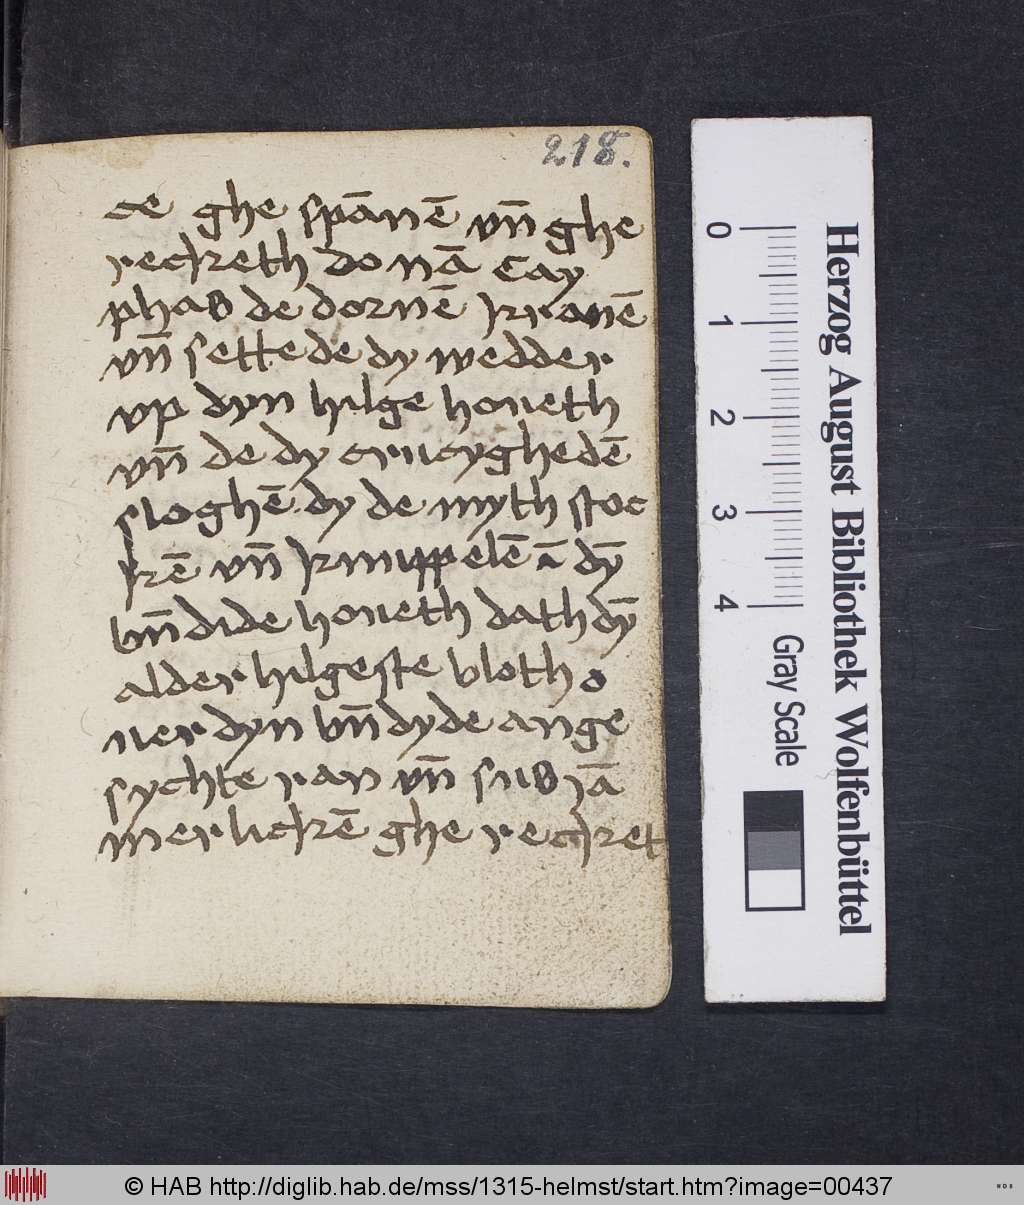 218.
de ghe spānē vn̄ ghe
recketh do nā Cay
phas de dornē kronē
vn̄ sette de dy wedder
vp dyn hilge houeth
vn̄ de dy crucyghedē
sloghē dy de myth stoc
kē vn̄ knuppelē ā dȳ
vn̄ dide houeth dath dȳ
alder hilgeste bloth o
uer dyn vn̄ dyde ange
sychte ran vn̄ sus iā
merlickē ghe recket
Herzog August Bibliothek Wolfenbüttel
0 1 2 3 4 Gray Scale
© HAB http://diglib.hab.de/mss/1315-helmst/start.htm?image=00437